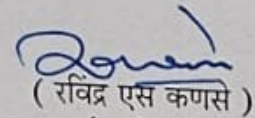 ( रविंद्र एस कणसे )